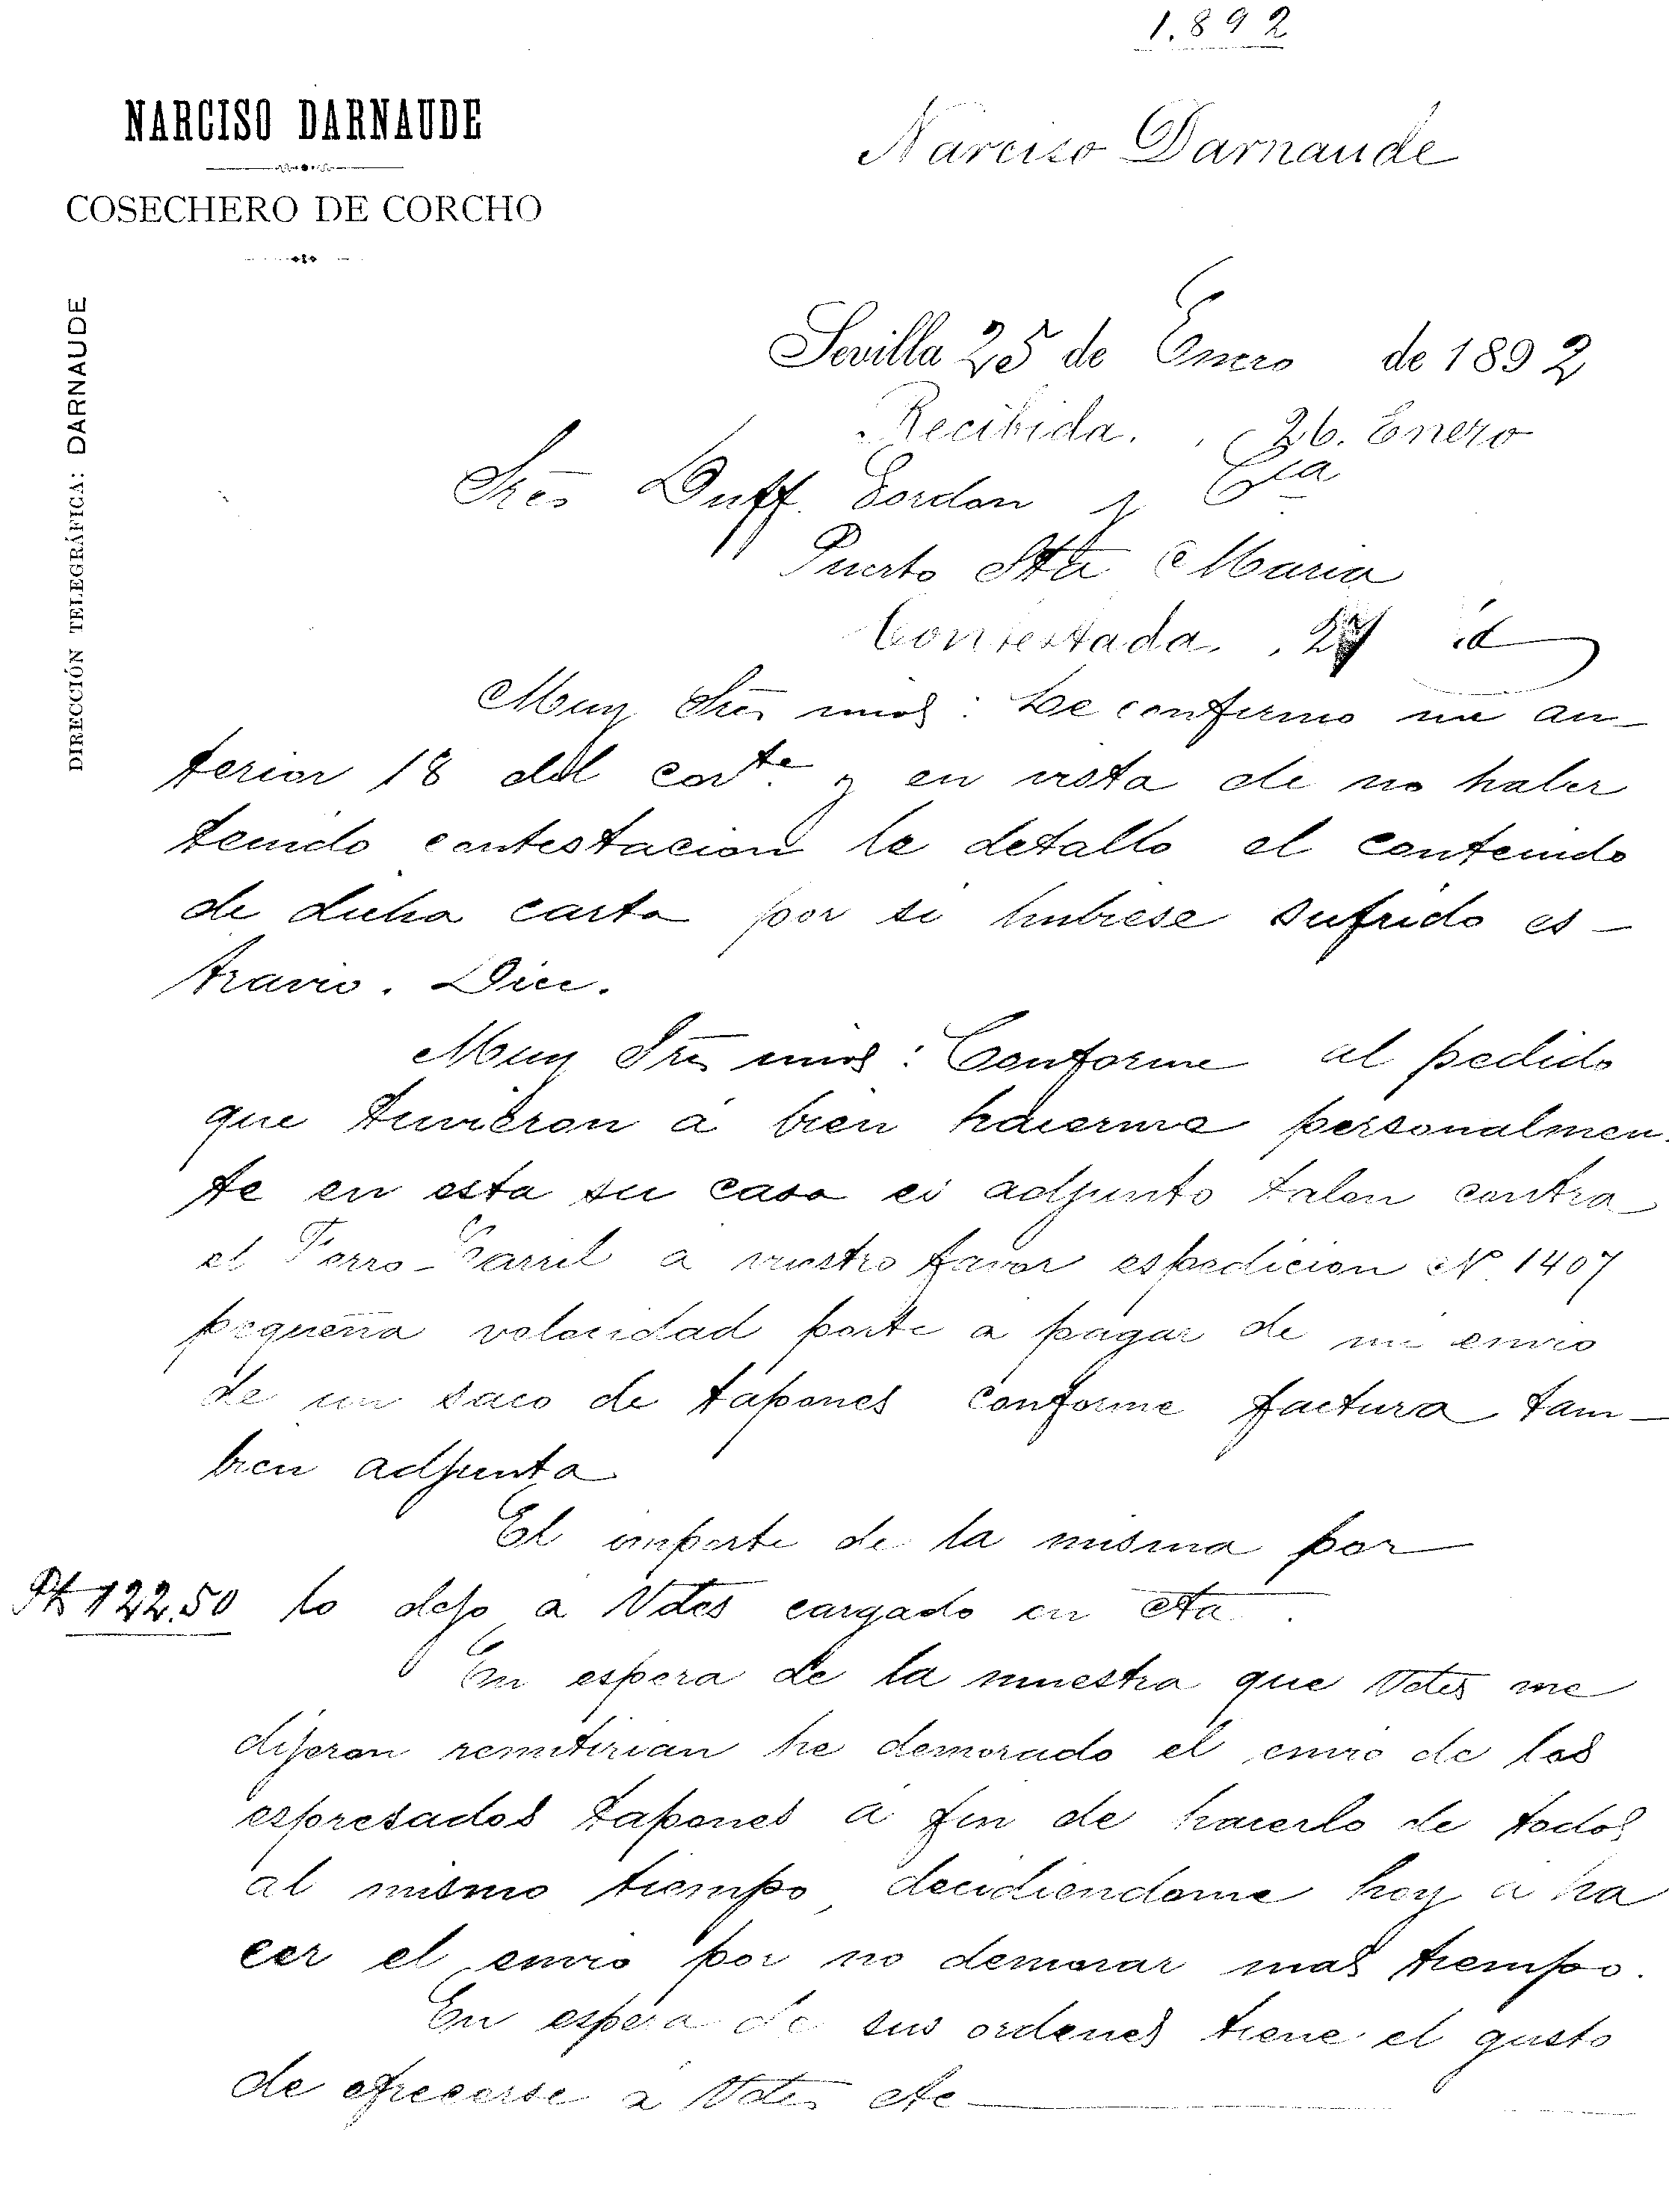 1.892
NARCISO DARNAUDE
Narciso Darnaude
COSECHERO DE CORCHO
DIRECCIÓN TELEGRÁFICA: DARNAUDE
Sevilla 25 de Enero de 1892
Recibida. 26. Enero
Sres Duff Gordon y Cia
Puerto Sta Maria
Contestada. 27 id
Muy Sres mios: Le confirmo mi an-
terior 18 del corte. y en vista de no haber
tenido contestacion le detallo el contenido
de dicha carta por si hubiese sufrido es-
travio. Dice.
Muy Sres mios: Conforme al pedido
que tuvieron á bien hacerme personalmen-
te en esta su casa es adjunto talon contra
el Ferro-Carril a vuestro favor espedicion N 1407
pequeña velocidad porte a pagar de mi envio
de un saco de tapones conforme factura tam-
bien adjunta
El importe de la misma por
Pts 122.50 lo dejo a Vdes cargado en cta.
En espera de la muestra que Vdes me
dijeron remitirian he demorado el envio de los
espresados tapones á fin de hacerlo de todos
al mismo tiempo, decidiendome hoy á ha
cer el envio por no demorar mas tiempo.
En espera de sus ordenes tiene el gusto
de ofrecerse a Vdes etc